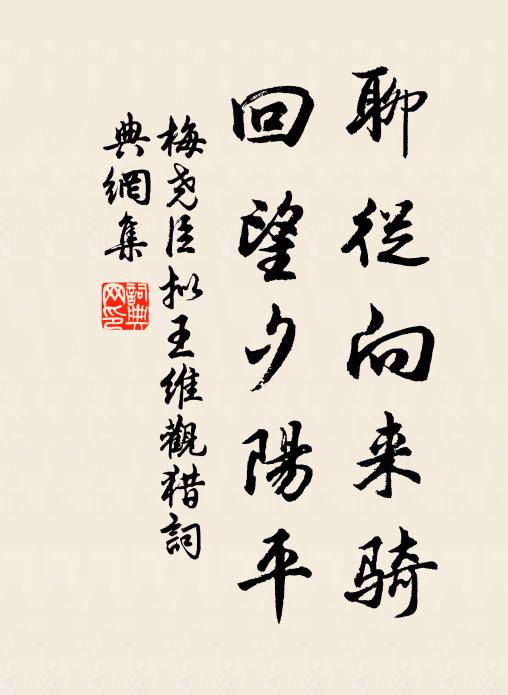 聊從向来骑
回望夕陽平
梅尧臣拟王維觀猎詞
典網集
詞典网印